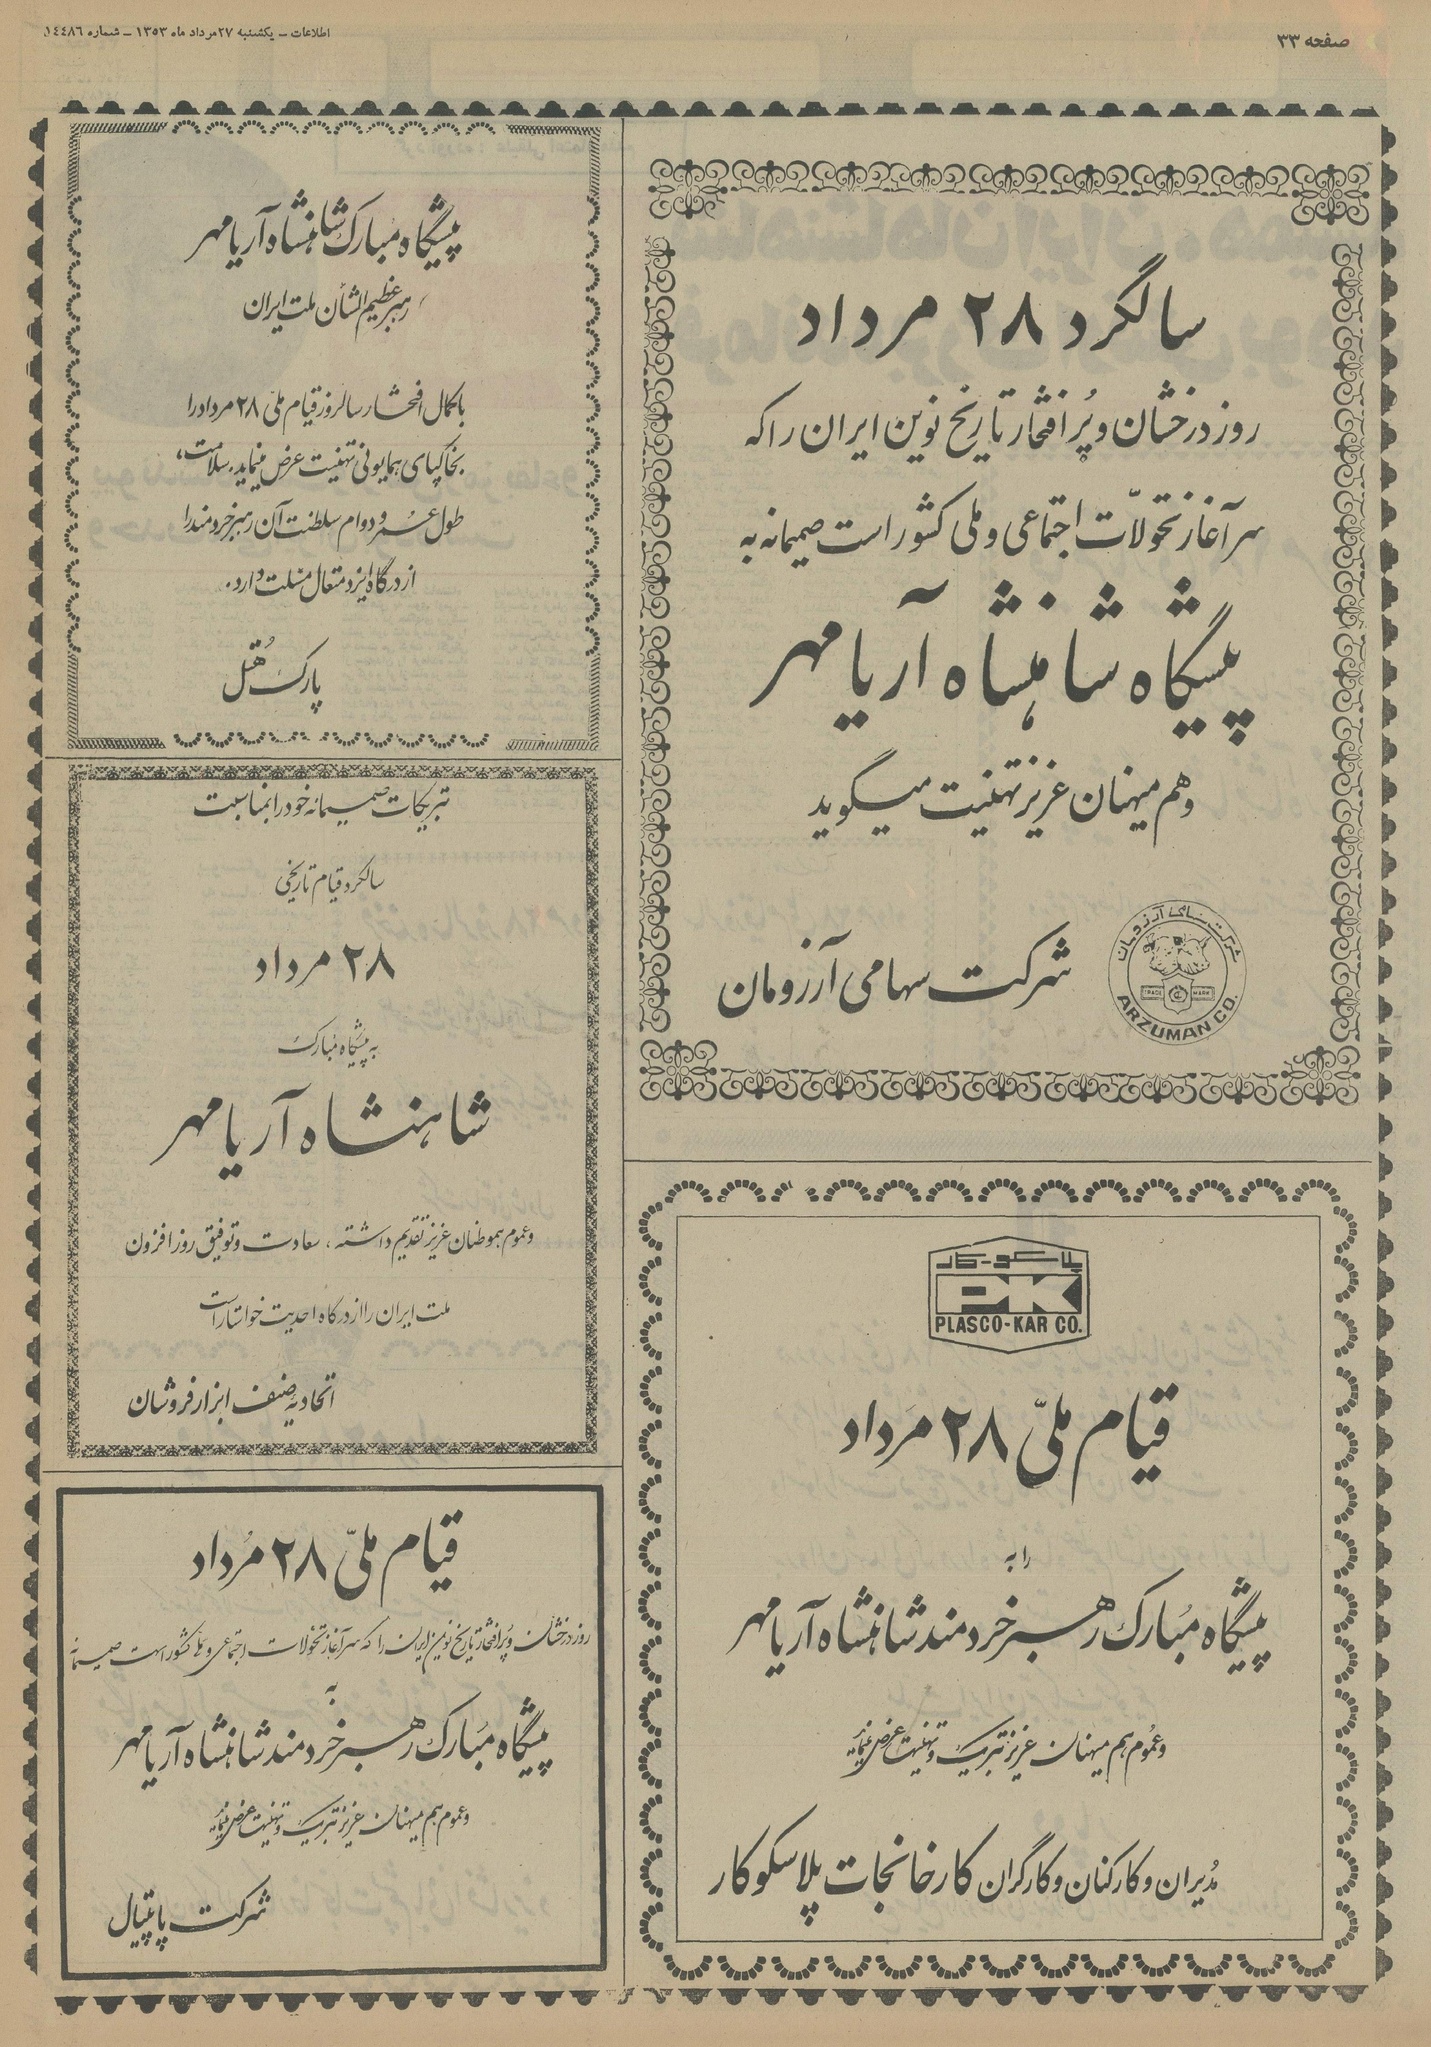 صفحه ۳۳
اطلاعات – یکشنبه ۲۷ مرداد ماه ۱۳۵۳ – شماره ۱٤٤٨٦
سالگرد ۲۸ مرداد
روز درخشان و پُر افتخار تاریخ نوین ایران را که
سرآغاز تحولّات اجتماعی و ملی کشور است صمیمانه به
پیشگاه شاهنشاه آریامهر
و هم میهنان عزیز تهنیت میگوید
شرکت سهامی آرزومان
شرکت سهامی آرزومان
TRADE MARK
ARZUMAN CO.
پلاسکو-کار
PK
PLASCO-KAR CO.
قیام ملیّ ۲۸ مرداد
را به
پیشگاه مُبارک رهبر خردمند شاهنشاه آریامهر
و عُموم هم میهنان عزیز تبریک و تهنیت عرض مینماید
مُدیران و کارکنان و کارگران کارخانجات پلاسکوکار
پیشگاه مبارک شاهنشاه آریامهر
رهبر عظیم الشأن ملت ایران
با کمال افتخار سالروز قیام ملیّ ۲۸ مرداد را
بخاکپای همایونی تهنیت عرض مینماید. سلامت،
طول عمر و دوام سلطنت آن رهبر خردمند را
از درگاه ایزد متعال مسئلت دارد.
پارک هُتل
تبریکات صمیمانه خود را بمناسبت
سالگرد قیام تاریخی
۲۸ مرداد
به پیشگاه مبارک
شاهنشاه آریامهر
و عموم هموطنان عزیز تقدیم داشته، سعادت و توفیق روزافزون
ملت ایران را از درگاه احدیت خواستار است
اتحادیه صنف ابزار فروشان
قیام ملیّ ۲۸ مُرداد
روز درخشان و پُر افتخار تاریخ نوین ایران را که سرآغاز تحولات اجتماعی و ملی کشور است صمیمانه
به
پیشگاه مبارک رهبر خردمند شاهنشاه آریامهر
و عموم هم میهنان عزیز تبریک و تهنیت عرض مینماید
شرکت